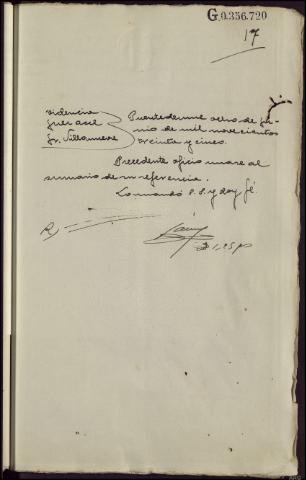 G.0.356.720
17
videncia
Juez acci
Sr. Villanueva
Puentedeume ocho de ju-
nio de mil novecientos
treinta y cinco.
Precedente oficio unase al
sumario de su referencia.
Lo mandó S.S. y doy fé.